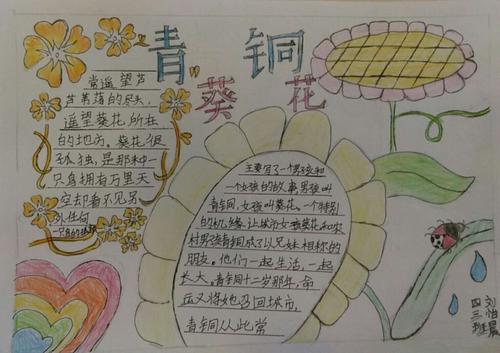 青铜
葵花
主要写了一个男孩和
一个女孩的故事男孩叫
青铜,女孩叫葵花。一个特别
的机缘,让城市女孩葵花和农
村男孩青铜成了以兄妹相称的
朋友。他们一起生活,一起
长大。青铜十二岁那年,命
运又将她召回城市,
青铜从此常
常遥望芦
芦苇荡的尽头,
遥望葵花所在
的地方。葵花很
孤独,是那种一
只鸟拥有万里天
空却看不见另
外任何
一只鸟的
四三班
刘怡晨